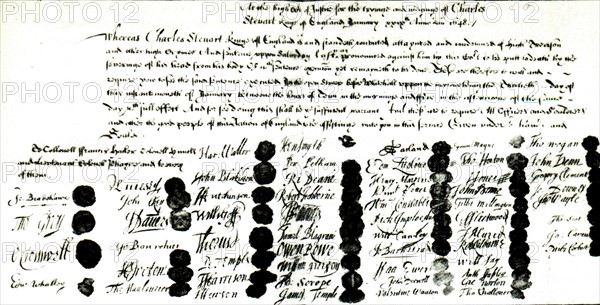 At the high Cort of Justice for the tryinge and iudginge of Charles
Steuart Kinge of England January xxixth Anno Dni 1648./
Whereas Charles Steuart Kinge of England is and standeth convicted attaynted and condemned of High Treason
and other high Crymes And sentence uppon Saturday last was pronounced against him by this Cort to be putt to death by the
severinge of his head from his body Of wch sentence execucon yet remayneth to be done These are therefore to will and
require you to see the said sentence executed In the open Streete before Whitehall uppon the morrowe Thirtieth day of
this instant moneth of January betweene the houres of Tenn in the morninge and Five in the afternoone of the same
day wth full effect And for soe doing this shall be yor sufficient warrant And these are to require All Officers and Souldiers
and other the good people of this Nation of England to be assistinge unto you in this service Given under or hands and
Seales
To Collonell ffrancis Hacker Colonell Huncks
and Lieutenant Colonell Phayre and to every
of them
Jo Bradshawe
Tho Grey
O Cromwell
Edw Whalley
M Livesey
John Okey
J Danvers
Jo Bourchier
H Ireton
Tho Mauleverer
Har Waller
John Blakiston
J Hutchinson
Willi Goff
Tho Pride
P Temple
T Harrison
J Hewson
Hen Smyth
Per Pelham
Ri Deane
Robert Tichborne
H Edwardes
Daniel Blagrave
Owen Rowe
William Purefoy
Ad Scrope
James Temple
A Garland
Edm Ludlowe
Henry Marten
Vinct Potter
Wm Constable
Rich Ingoldesby
Will Cawley
Jo Barkstead
Isaa Ewer
John Dixwell
Valentine Wauton
Symon Mayne
Tho Horton
J Jones
John Moore
Gilbt Millington
G Fleetwood
J Alured
Robt Lilburne
Will Say
Anth Stapley
Gre Norton
Tho Challoner
Tho Wogan
John Venn
Gregory Clement
Jo Downes
Tho Wayte
Tho Scot
Jo Carew
Miles Corbet